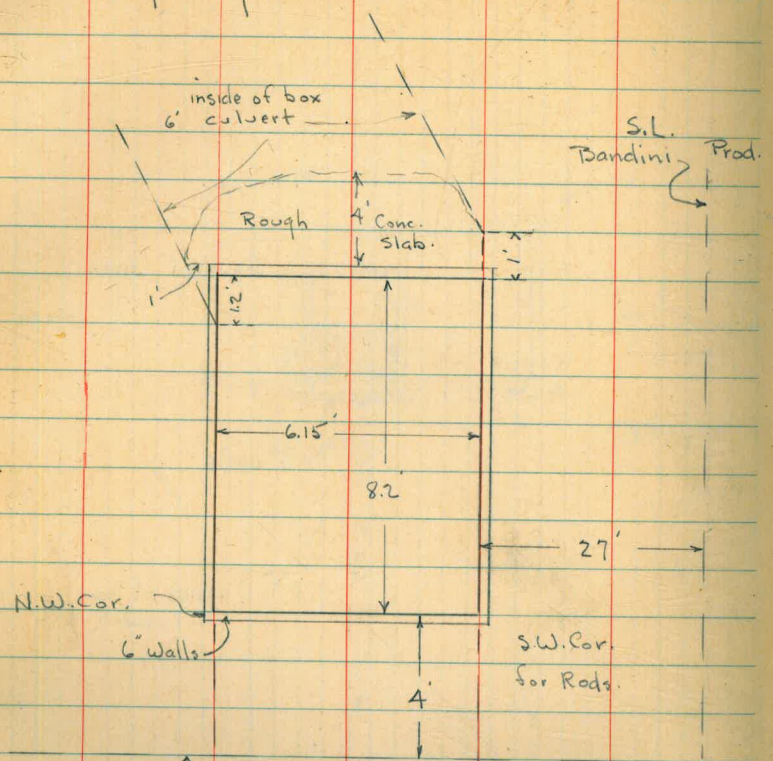 inside of box
6' culvert
S.L.
Bandini
Prod.
Rough
4'
Conc.
slab.
1'
1'
1.2'
6.15'
8.2'
27'
N.W. Cor.
6" Walls
S.W. Cor.
for Rods.
4'